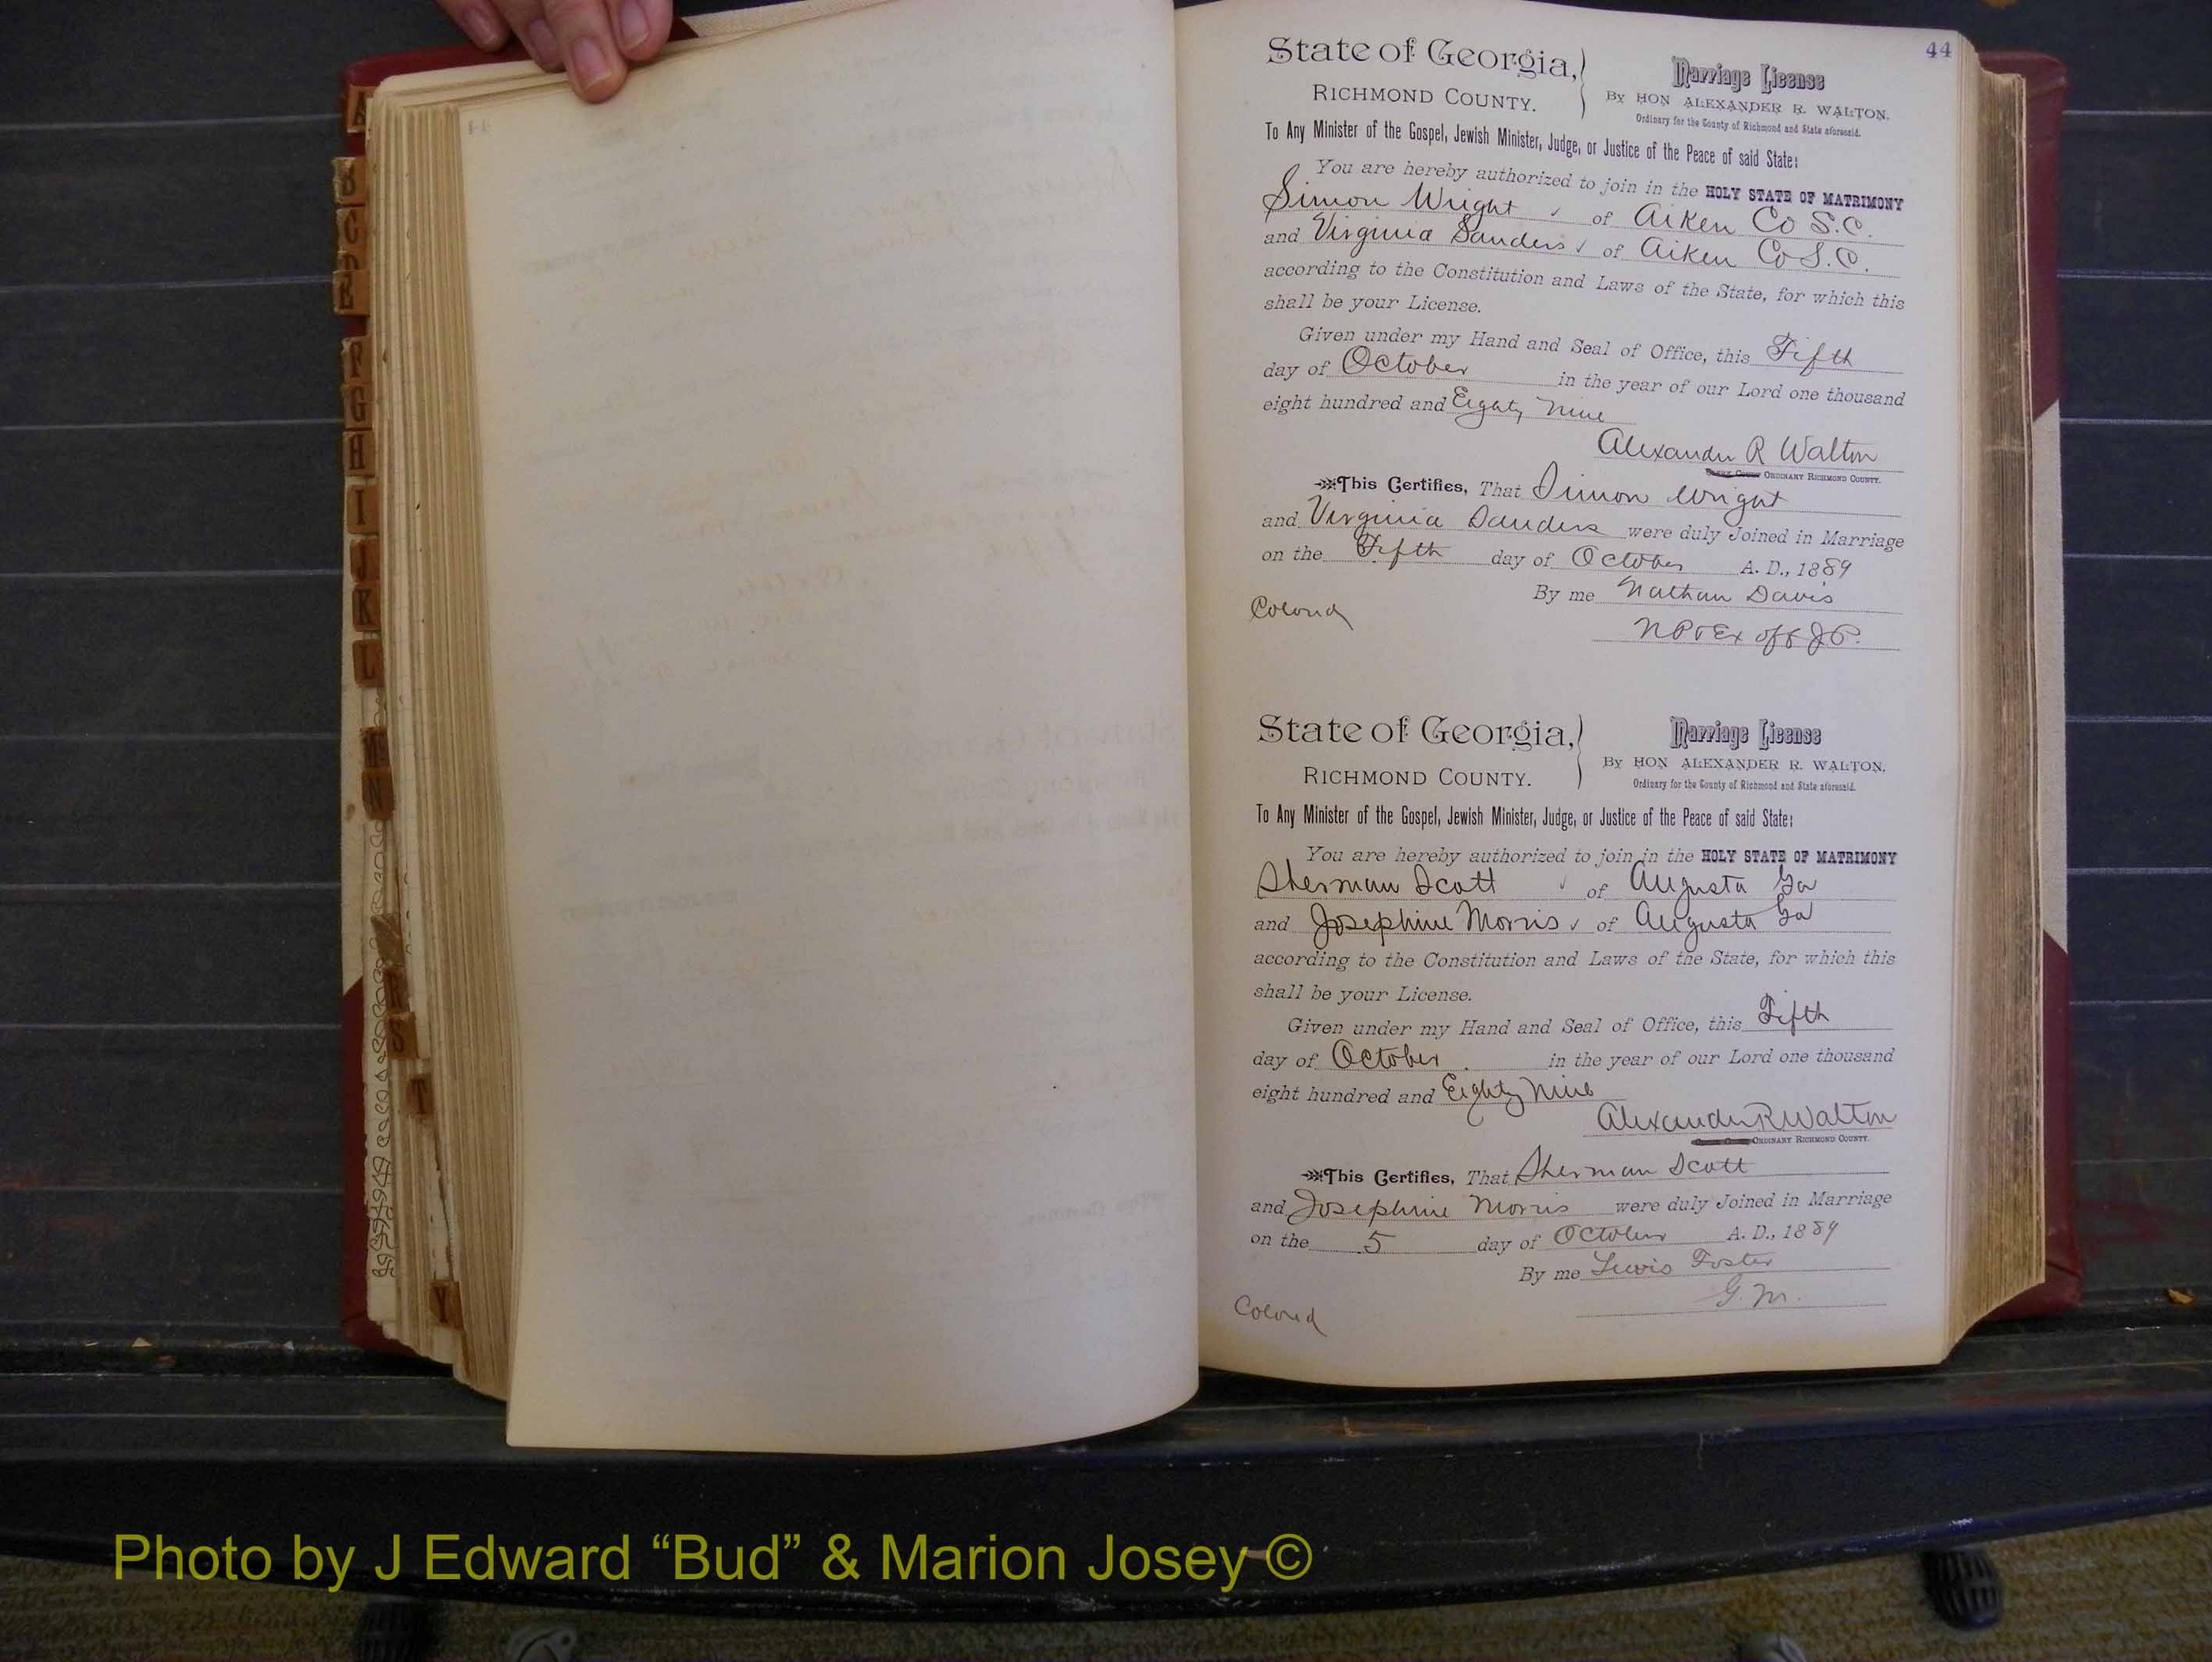 44
State of Georgia,
RICHMOND COUNTY.
Marriage License
By HON ALEXANDER R. WALTON,
Ordinary for the County of Richmond and State aforesaid.
To Any Minister of the Gospel, Jewish Minister, Judge, or Justice of the Peace of said State:
You are hereby authorized to join in the HOLY STATE OF MATRIMONY
Simon Wright of Aiken Co S.C.
and Virginia Sanders of Aiken Co S.C.
according to the Constitution and Laws of the State, for which this
shall be your License.
Given under my Hand and Seal of Office, this Fifth
day of October in the year of our Lord one thousand
eight hundred and Eighty Nine
Alexander R Walton
ORDINARY RICHMOND COUNTY.
This Certifies, That Simon Wright
and Virginia Sanders were duly Joined in Marriage
on the Fifth day of October A. D., 1889
By me Nathan Davis
Colored NP & Ex off J.P.
State of Georgia,
RICHMOND COUNTY.
Marriage License
By HON ALEXANDER R. WALTON,
Ordinary for the County of Richmond and State aforesaid.
To Any Minister of the Gospel, Jewish Minister, Judge, or Justice of the Peace of said State:
You are hereby authorized to join in the HOLY STATE OF MATRIMONY
Sherman Scott of Augusta Ga
and Josephine Morris of Augusta Ga
according to the Constitution and Laws of the State, for which this
shall be your License.
Given under my Hand and Seal of Office, this Fifth
day of October in the year of our Lord one thousand
eight hundred and Eighty Nine
Alexander R Walton
ORDINARY RICHMOND COUNTY.
This Certifies, That Sherman Scott
and Josephine Morris were duly Joined in Marriage
on the 5 day of October A. D., 1889
By me Lewis Foster
G. M.
Colored
A
B
C
D
E
F
G
H
I
J
K
L
M
N
S
T
Y
Photo by J Edward “Bud” & Marion Josey ©